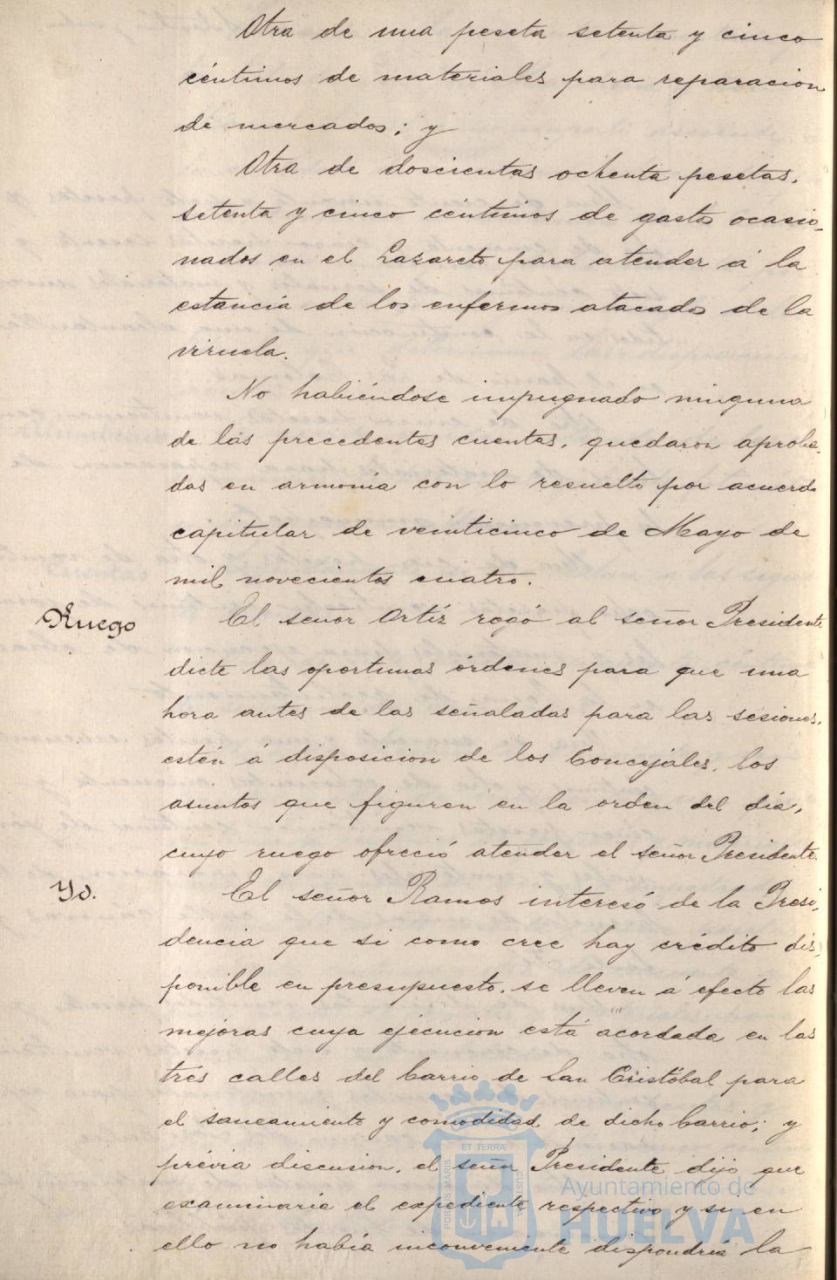 Otra de una peseta setenta y cinco
céntimos de materiales para reparacion
de mercados; y
Otra de doscientas ochenta pesetas,
setenta y cinco céntimos de gastos ocasio-
nados en el Lazareto para atender á la
estancia de los enfermos atacados de la
viruela.
No habiéndose impugnado ninguna
de las precedentes cuentas, quedaron aproba-
das en armonía con lo resuelto por acuerdo
capitular de veinticinco de Mayo de
mil novecientos cuatro.
Ruego
El señor Ortíz rogó al señor Presidente
dicte las oportunas órdenes para que una
hora antes de las señaladas para las sesiones,
estén á disposicion de los Concejales, los
asuntos que figuren en la orden del dia,
cuyo ruego ofreció atender el señor Presidente.
Yd.
El señor Ramos interesó de la Presi-
dencia que si como cree hay crédito dis-
ponible en presupuesto, se lleven á efecto las
mejoras cuya ejecucion está acordada en las
tres calles del barrio de San Cristóbal para
el saneamiento y comodidad de dicho barrio; y
prévia discusion, el señor Presidente dijo que
examinaría el expediente respectivo y si en
ello no había inconveniente dispondría la
ET TERRÆ
Ayuntamiento de
HUELVA